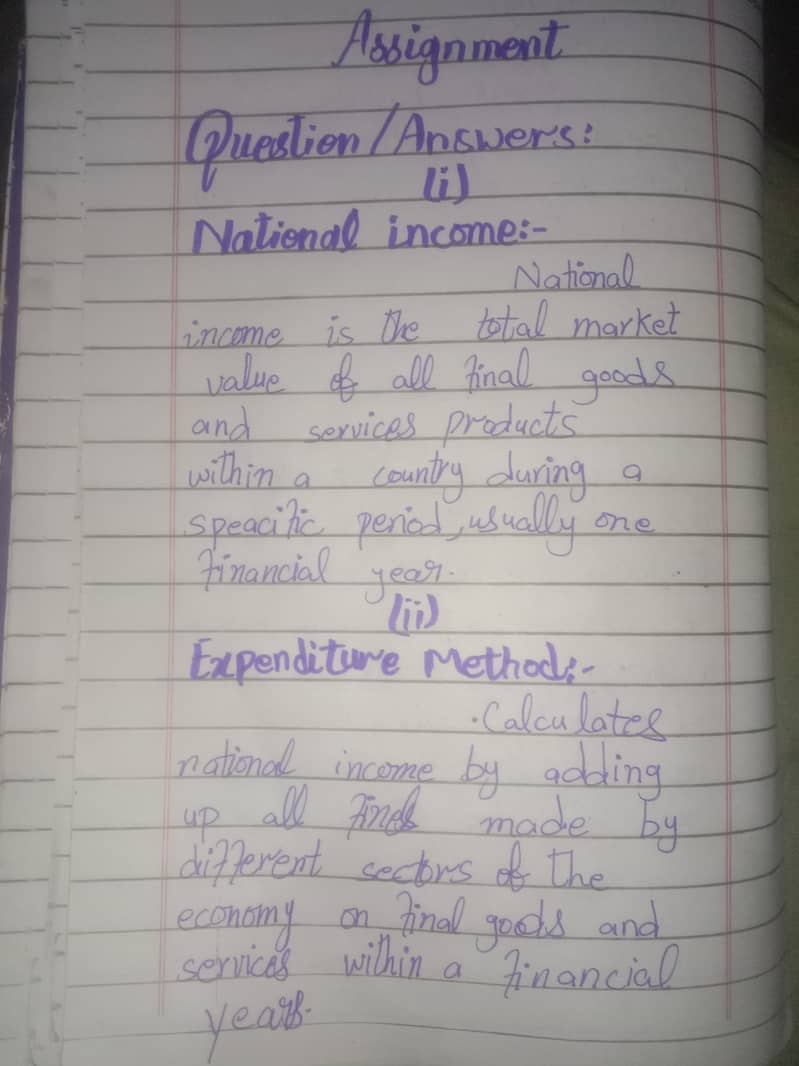 Assignment
Question/Answers:
(i)
National income:-
National
income is the total market
value of all final goods
and services products
within a country during a
speacific period, usually one
financial year.
(ii)
Expenditure Method:-
Calculates
national income by adding
up all fines made by
different sectors of the
economy on final goods and
services within a financial
years.